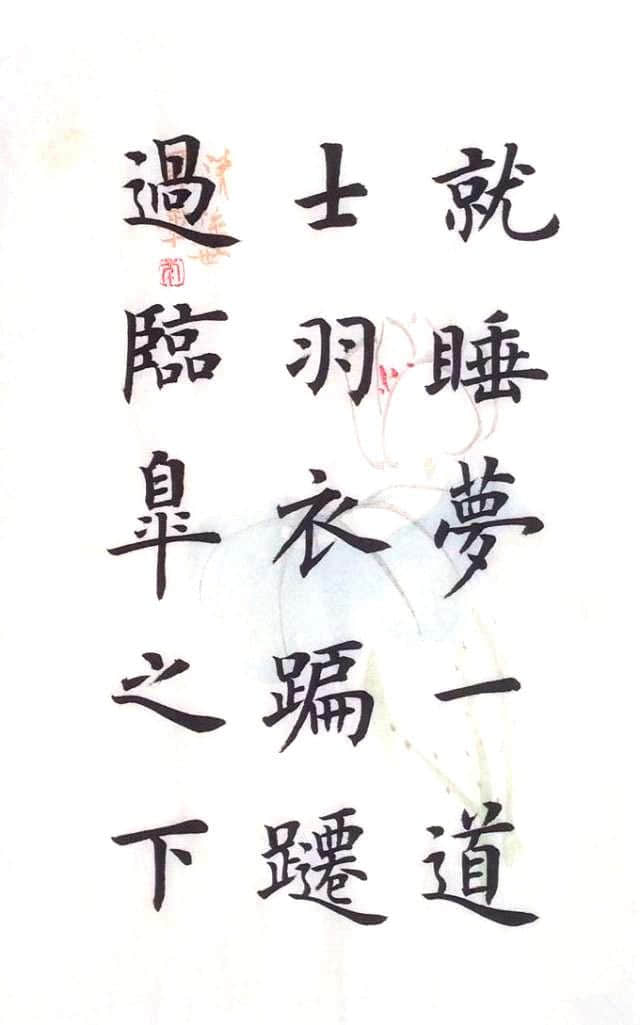 就睡夢一道
士羽衣蹁躚
過臨皐之下